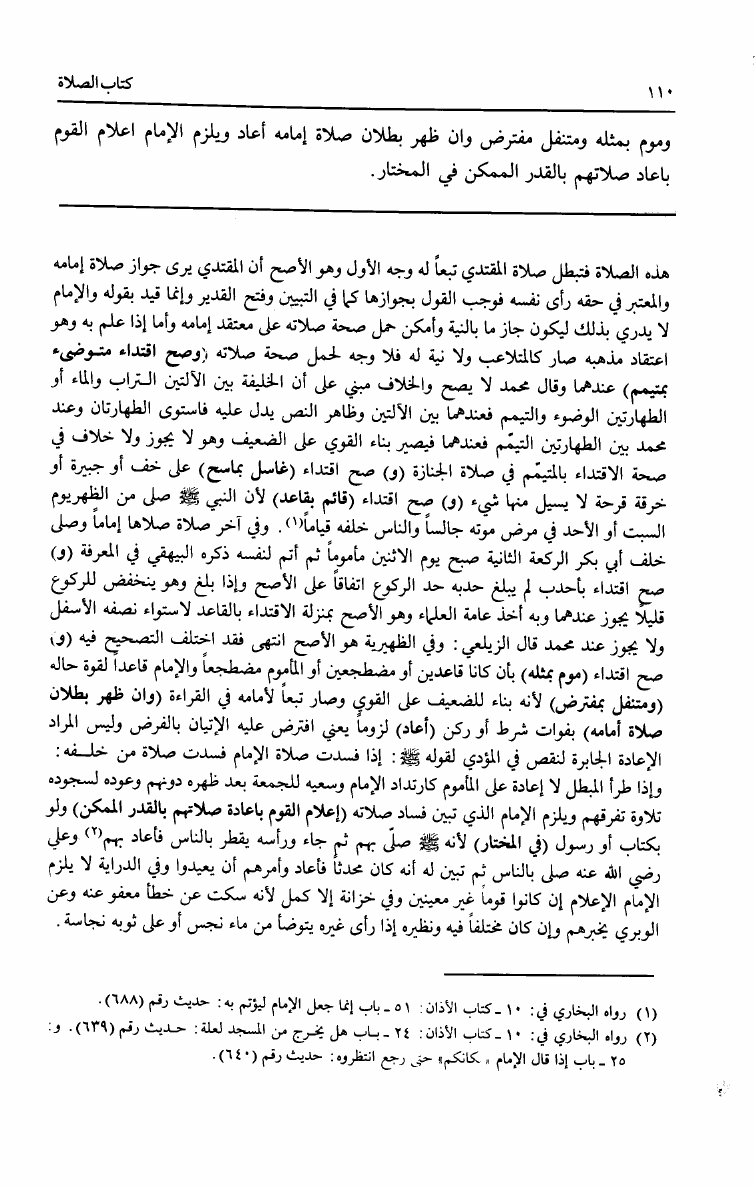 ١١٠
كتاب الصلاة
وموم بمثله ومتنفل مفترض وان ظهر بطلان صلاة إمامه أعاد ويلزم الإمام اعلام القوم
باعاد صلاتهم بالقدر الممكن في المختار.
هذه الصلاة فتبطل صلاة المقتدي تبعاً له وجه الأول وهو الأصح أن المقتدي يرى جواز صلاة إمامه
والمعتبر في حقه رأى نفسه فوجب القول بجوازها كما في التبيين وفتح القدير وإنما قيد بقوله والإمام
لا يدري بذلك ليكون جاز ما بالنية وأمكن حمل صحة صلاته على معتقد إمامه وأما إذا علم به وهو
اعتقاد مذهبه صار كالمتلاعب ولا نية له فلا وجه لحمل صحة صلاته (وصح اقتداء متوضىء
بمتيمم) عندهما وقال محمد لا يصح والخلاف مبني على أن الخليفة بين الآلتين التراب والماء أو
الطهارتين الوضوء والتيمم فعندهما بين الآلتين وظاهر النص يدل عليه فاستوى الطهارتان وعند
محمد بين الطهارتين التيمّم فعندهما فيصير بناء القوي على الضعيف وهو لا يجوز ولا خلاف في
صحة الاقتداء بالمتيمّم في صلاة الجنازة (و) صح اقتداء (غاسل بماسح) على خف أو جبيرة أو
خرقة قرحة لا يسيل منها شيء (و) صح اقتداء (قائم بقاعد) لأن النبي ﷺ صلى من الظهريوم
السبت أو الأحد في مرض موته جالساً والناس خلفه قياماً(١). وفي آخر صلاة صلاها إماماً وصلى
خلف أبي بكر الركعة الثانية صبح يوم الاثنين مأموماً ثم أتم لنفسه ذكره البيهقي في المعرفة (و)
صح اقتداء بأحدب لم يبلغ حدبه حد الركوع اتفاقاً على الأصح وإذا بلغ وهو ينخفض للركوع
قليلاً يجوز عندهما وبه أخذ عامة العلماء وهو الأصح بمنزلة الاقتداء بالقاعد لاستواء نصفه الأسفل
ولا يجوز عند محمد قال الزيلعي: وفي الظهيرية هو الأصح انتهى فقد اختلف التصحيح فيه (و)
صح اقتداء (موم بمثله) بأن كانا قاعدين أو مضطجعين أو المأموم مضطجعاً والإمام قاعداً لقوة حاله
(ومتنفل بمفترض) لأنه بناء للضعيف على القوي وصار تبعاً لأمامه في القراءة (وان ظهر بطلان
صلاة أمامه) بفوات شرط أو ركن (أعاد) لزوماً يعني افترض عليه الإتيان بالفرض وليس المراد
الإعادة الجابرة لنقص في المؤدي لقوله ﷺ: إذا فسدت صلاة الإمام فسدت صلاة من خلـفه:
وإذا طرأ المبطل لا إعادة على المأموم كارتداد الإمام وسعيه للجمعة بعد ظهره دونهم وعوده لسجوده
تلاوة تفرقهم ويلزم الإمام الذي تبين فساد صلاته (إعلام القوم باعادة صلاتهم بالقدر الممكن) ولو
بكتاب أو رسول (في المختار) لأنه ﷺ صلّى بهم ثم جاء ورأسه يقطر بالناس فأعاد بهم(٢) وعلي
رضي الله عنه صلى بالناس ثم تبين له أنه كان محدثاً فأعاد وأمرهم أن يعيدوا وفي الدراية لا يلزم
الإمام الإعلام إن كانوا قوماً غير معينين وفي خزانة إلا كمل لأنه سكت عن خطأ معفو عنه وعن
الوبري يخبرهم وإن كان مختلفاً فيه ونظيره إذا رأى غيره يتوضأ من ماء نجس أو على ثوبه نجاسة.
(١) رواه البخاري في: ١٠ ـ كتاب الأذان: ٥١ ـ باب إنما جعل الإمام ليؤتم به: حديث رقم (٦٨٨).
(٢) رواه البخاري في: ١٠ ـ كتاب الأذان: ٢٤ ـ باب هل يخرج من المسجد لعلة: حديث رقم (٦٣٩). و:
٢٥ ـ باب إذا قال الإمام «مكانكم» حتى رجع انتظروه: حديث رقم (٦٤٠).